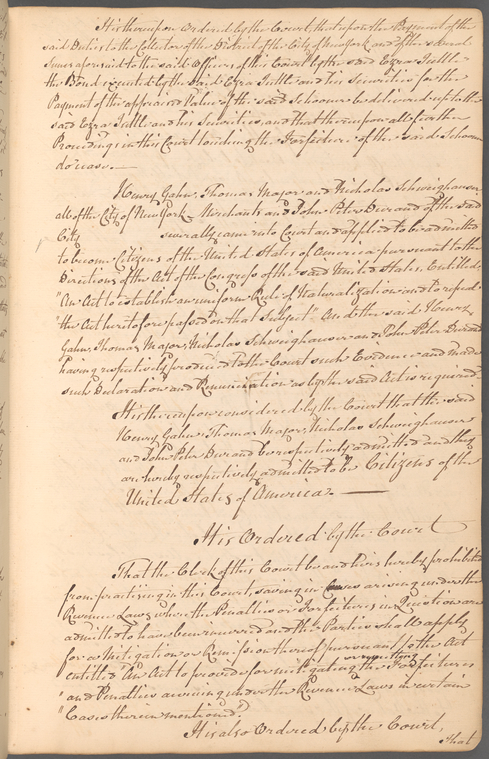 It is thereupon Ordered by the Court, that upon the Payment of the
said Duties to the Collector of the District of the City of New York and of the several
Sums aforesaid to the said Officers of this Court by the said Ezra
the Bond executed by the said Ezra and his Securities for the
Payment of the appraised Value of the said Schooner be delivered up to the
said Ezra and his Securities, and that thereupon all further
Proceedings in this Court touching the Forfeiture of the said Schooner
do cease.—
Henry Gahn, Thomas Major and Nicholas Schweighauser
all of the City of New York Merchants and John Peter Durand of the said
City severally came into Court and applied to be admitted
to become Citizens of the United States of America pursuant to the
Directions of the Act of the Congress of the said United States, Entitled,
"An Act to establish an uniform Rule of Naturalization and to repeal
"the Act heretofore passed on that Subject" And the said Henry
Gahn, Thomas Major, Nicholas Schweighauser and John Peter Durand
having respectively produced to the Court such Evidence and made
such Declaration and Renunciation as by the said Act is required
It is thereupon considered by the Court that the said
Henry Gahn, Thomas Major, Nicholas Schweighauser
and John Peter Durand be respectively admitted and they
are hereby respectively admitted to be Citizens of the
United States of America. —
It is Ordered by the Court
That the Clerk of this Court be and he is hereby prohibited
from practising in this Court, saving in Cases arising under the
Revenue Laws where the Penalties or Forfeitures in Question are
admitted to have been incurred and the Parties shall apply
for a Mitigation or Remission thereof pursuant to the Act
entitled "An Act to provide for mitigating or remitting the Forfeitures
"and Penalties accruing under the Revenue Laws in certain
"Cases therein mentioned."
It is also Ordered by the Court,
That